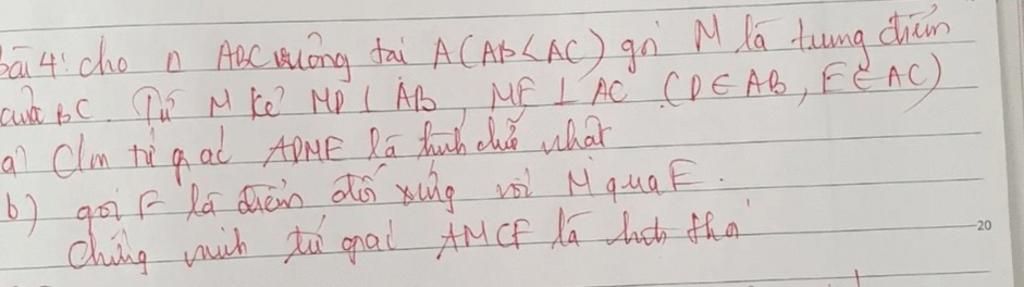 Bài 4: cho Δ ABC vuông tại A (AB < AC) gọi M là trung điểm
của BC. Từ M kẻ MD ⊥ AB, ME ⊥ AC (D ∈ AB, E ∈ AC)
a) Cm tứ giác ADME là hình chữ nhật
b) gọi F là điểm đối xứng với M qua E.
Chứng minh tứ giác AMCF là hình thoi
20